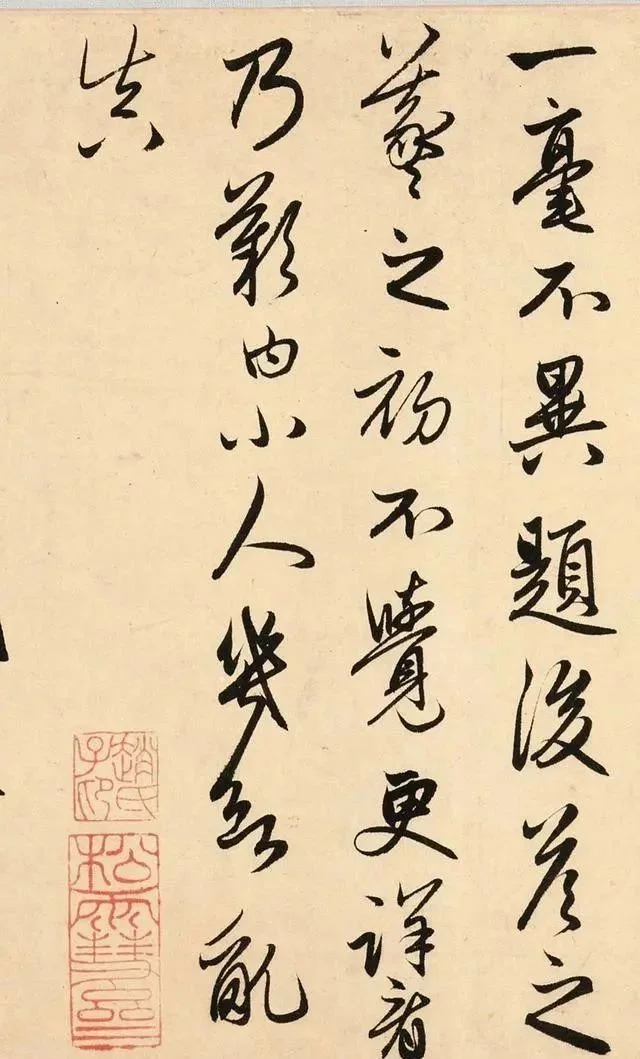 一毫不異題後答之
羲之初不覺更詳看
乃歎曰小人幾欲亂
真
趙氏子昂
松雪齋